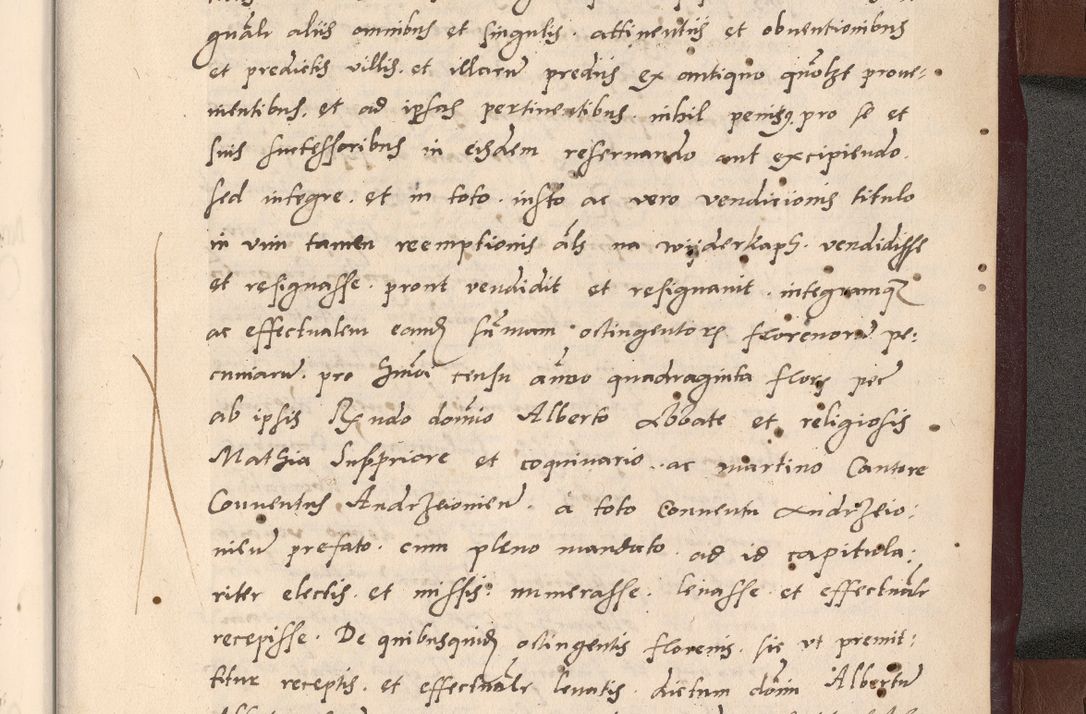 gnālr aliis omnibus et singulis. attinentiis et obventionibus
et predictis villis. et illarum prediis ex antiquo quōlzt prove-
nientibus. et ad ipsas pertinentibus nihil penitus pro se et
suis successoribus in eisdem reservando aut excipiendo.
sed integre. et in toto. iusto ac vero vendicionis titulo
in vim tamen reemptionis āls na wyderkaph. vendidisse
et resignasse. prout vendidit et resignavit. integramqz
ac effectualem eamd sūmam octingentorum florenorum pe:
cuniarum. pro hmōi censu anno quadraginta flor pec
ab ipsis Rndo domīo Alberto Abbate et religiosis
Mathia Suppriore et coquinario. ac martino Cantore
Conventus Andrzeiovien. a toto Conventu Andrzeio:
vien prefato. cum pleno mandato. ad id capitula:
riter electis. et missis: numerasse. levasse. et effectuālr
recepisse. De quibusquid octingentis florenis. sic ut premit:
titur receptis. et effectuālr levatis. dictum dōim Albertum